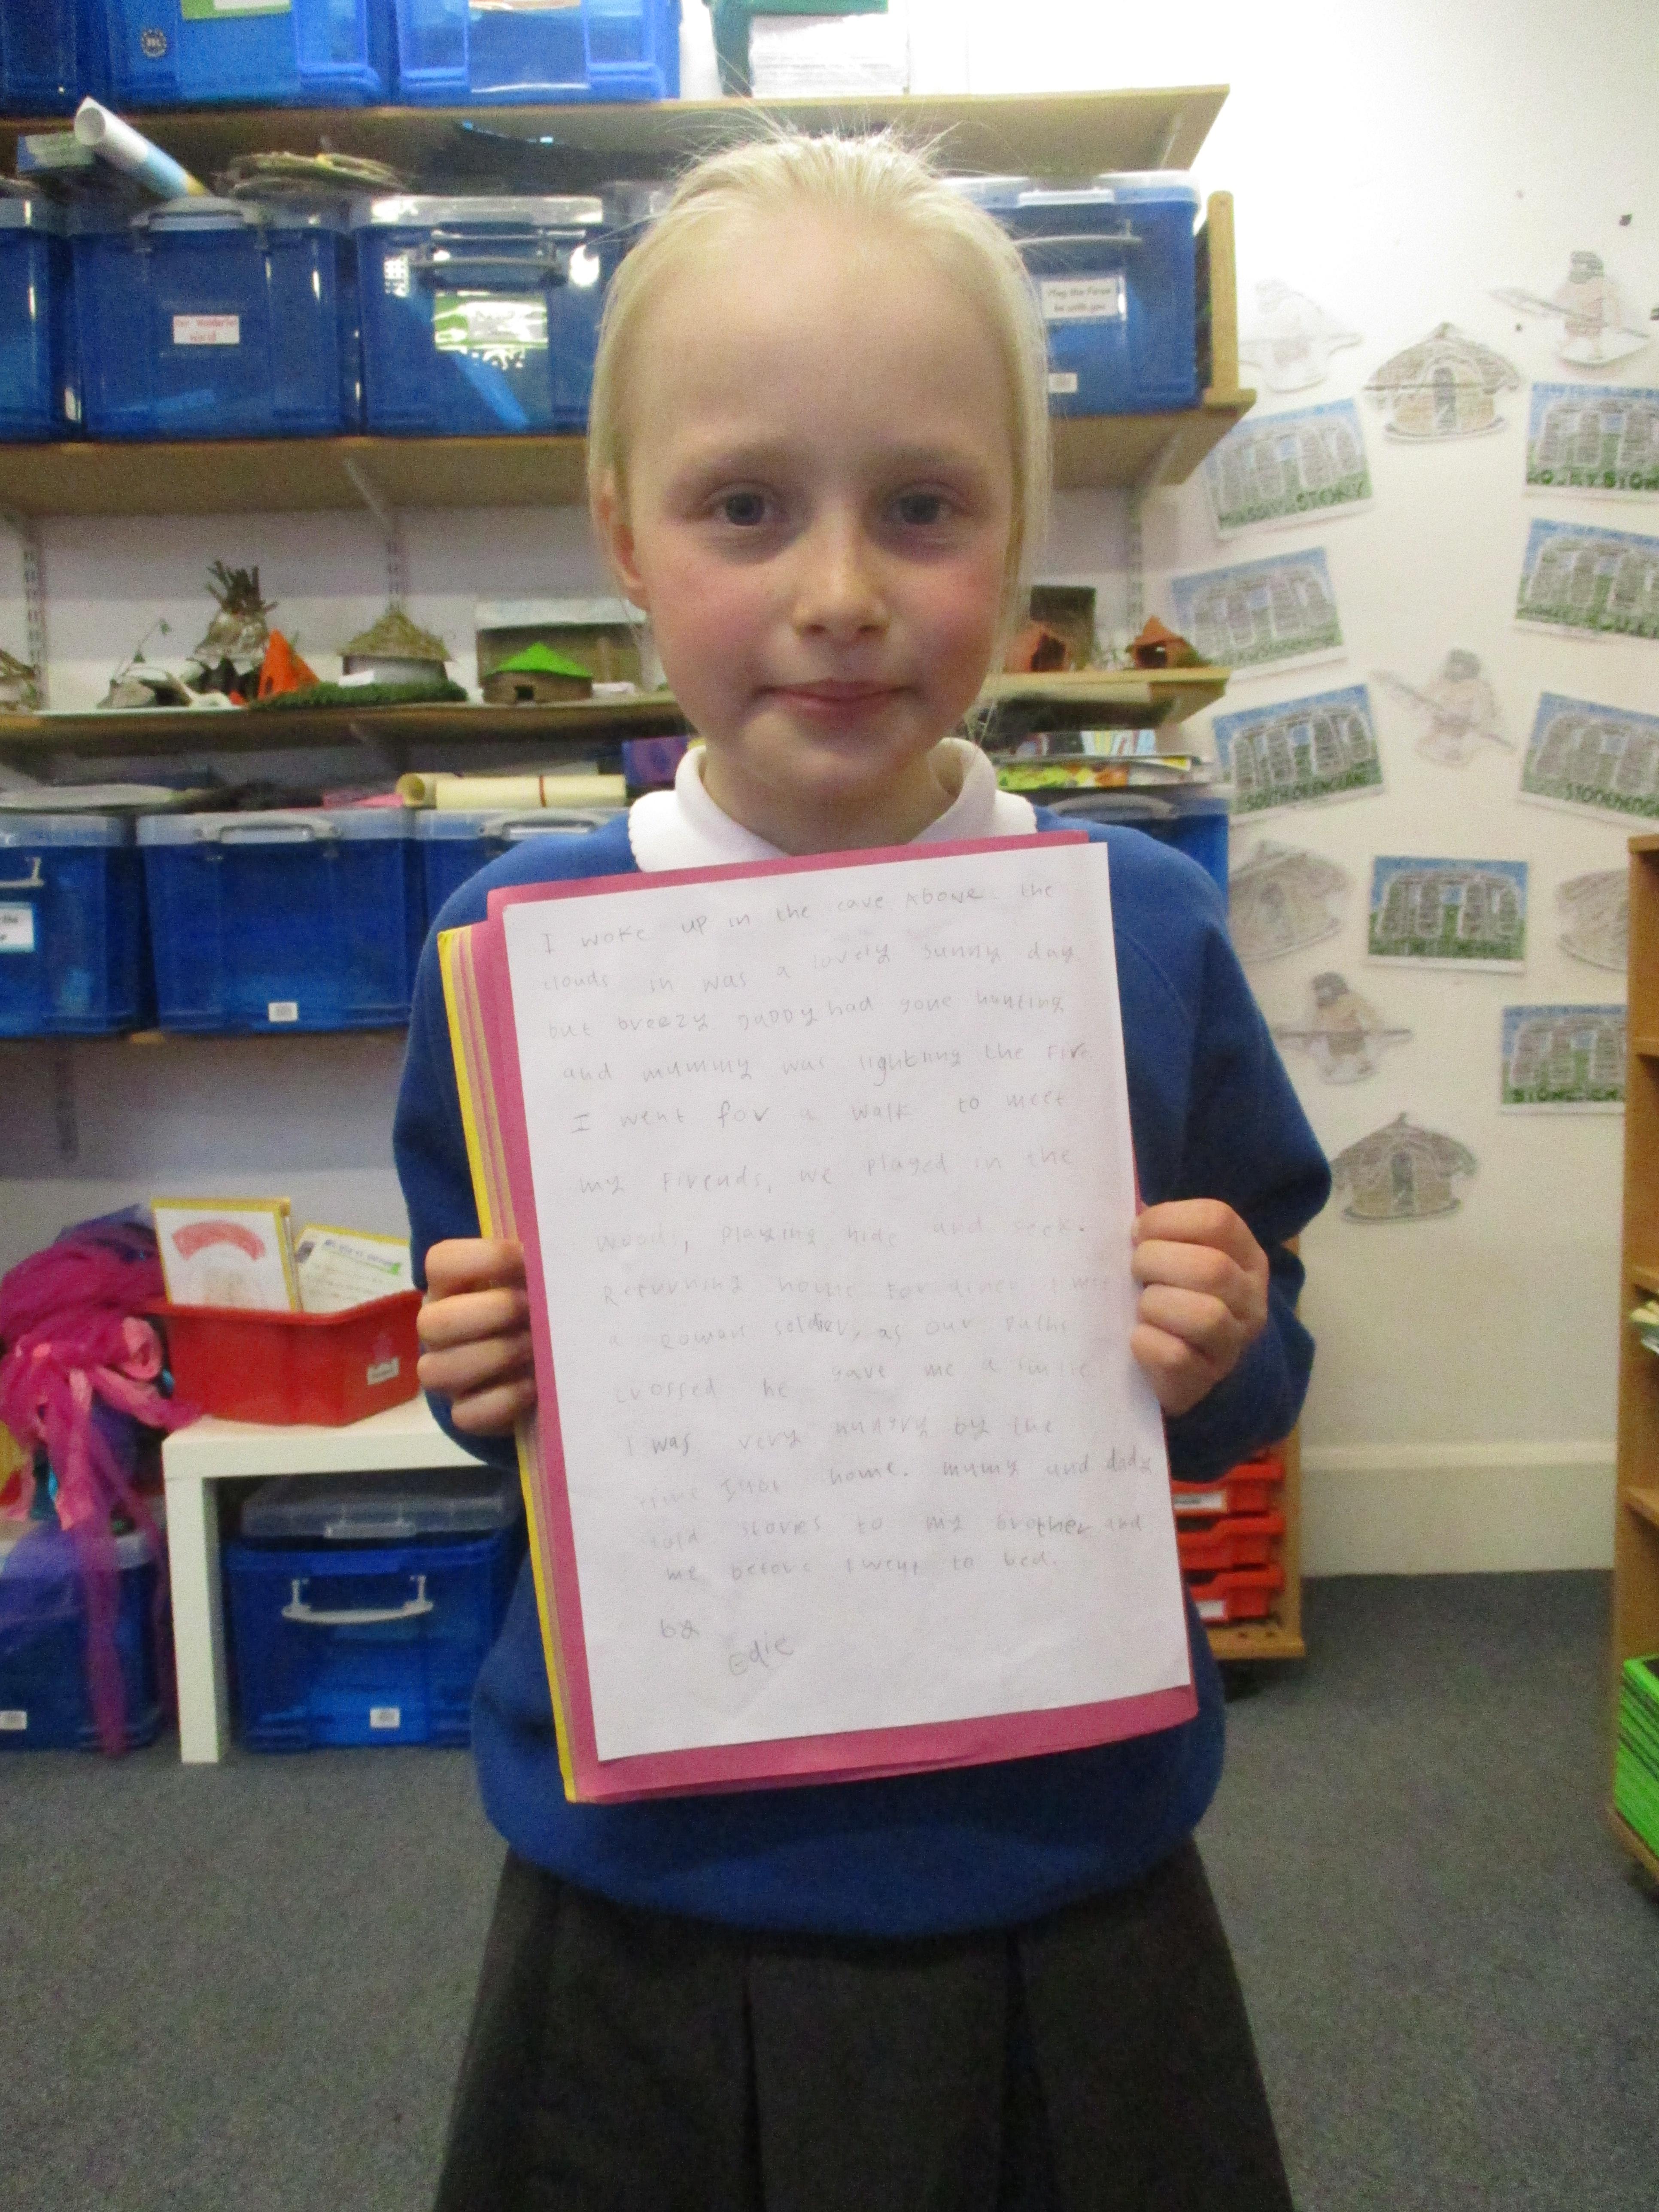 I woke up in the cave Above the
clouds in was a lovely sunny day
but breezy daddy had gone hunting
and mummy was lighting the fire
I went for a walk to meet
my firends, we played in the
woods, playing hide and seek.
Returning home for diner I
a Roman soldier, as our paths
crossed he gave me a smile
I was very hungry by the
time I got home. mumy and dady
told stores to my brother and
me before I went to bed.
by
Edie
May the Force
be with you
STONEHEN
SOUTH OF ENGLAN
STONEHENG